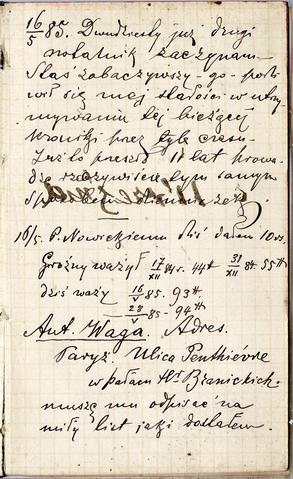 16/5 85. Dwudziesty już drugi
notatnik zaczynam.
Staś zobaczywszy go podzi-
wił się mej stałości w utrzy-
mywaniu tej bieżącej
kroniki przez tyle czasu.
Już to przeszło 11 lat prowa-
dzę rzeczywiście tym samym
sposobem
16/5. P. Nowickiemu dziś dałem 10 rs.
Groźny ważył 17/XII 84 r. 44 ℔ — 31/XII 84 55 ℔
dziś waży 16/V 85. 93 ℔
— 28/V 85 — 94 ℔
Ant. Waga. Adres.
Paryż. Ulica Penthièvre
w pałacu Hr Branickich.
muszę mu odpisać na
miły list jaki dostałem.